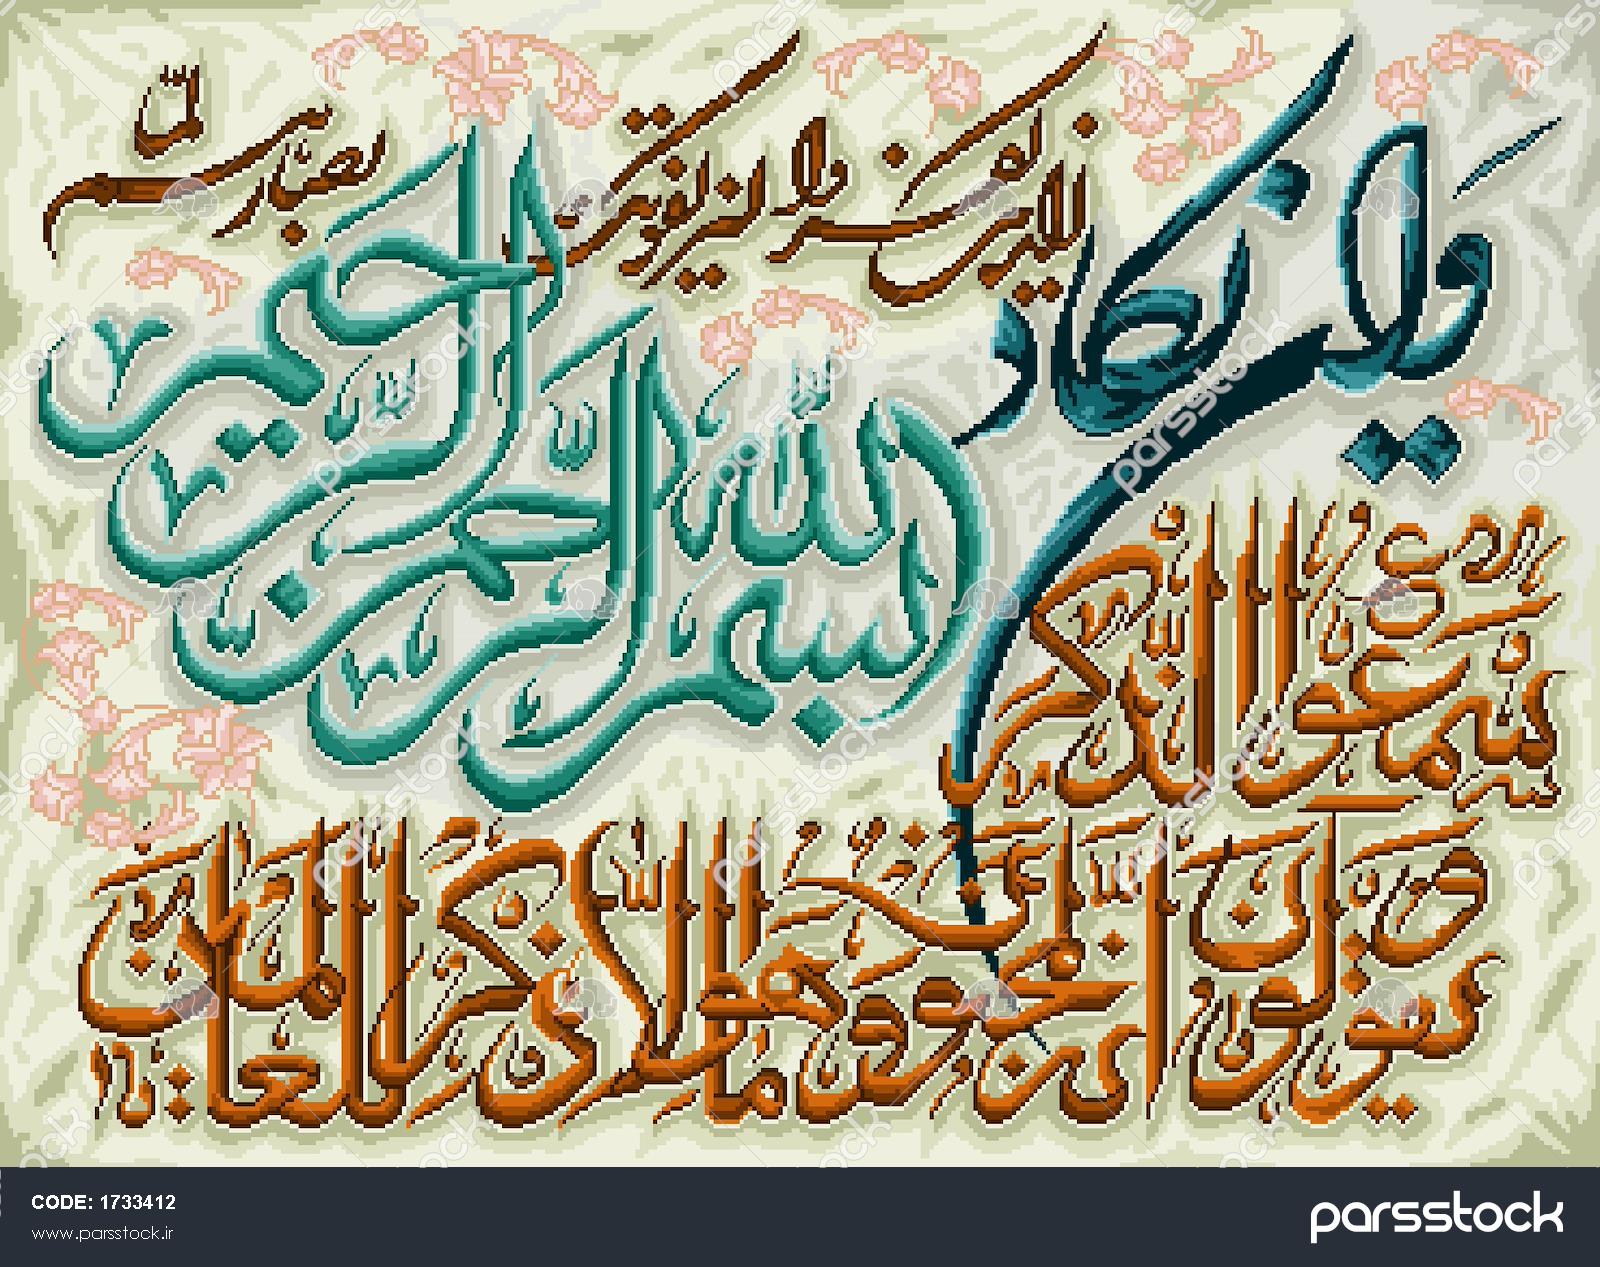 بسم الله الرحمن الرحیم
وان یکاد
الذین کفروا لیزلقونک
بابصارهم لما
سمعوا الذکر
و یقولون انه لمجنون و ما هو الا ذکر للعالمین
CODE: 1733412
www.parsstock.ir
parsstock